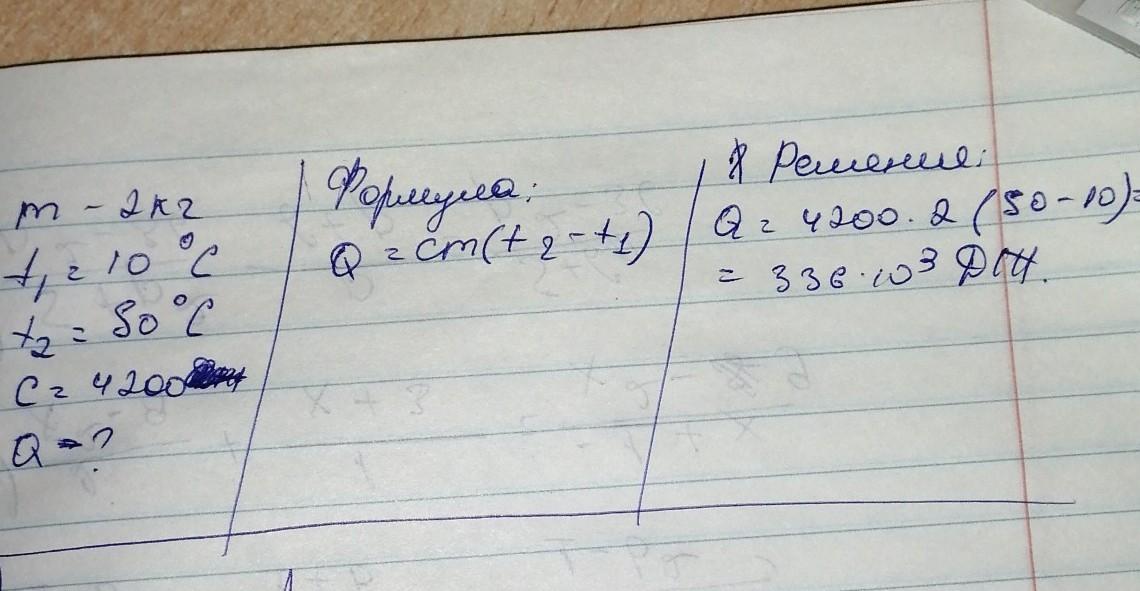 m - 2кг
t₁ = 10 °C
t₂ = 50 °C
C = 4200
Q - ?
Формула:
Q = cm(t₂ - t₁)
Решение:
Q = 4200 · 2 (50 - 10) =
= 336 · 10³ Дж.